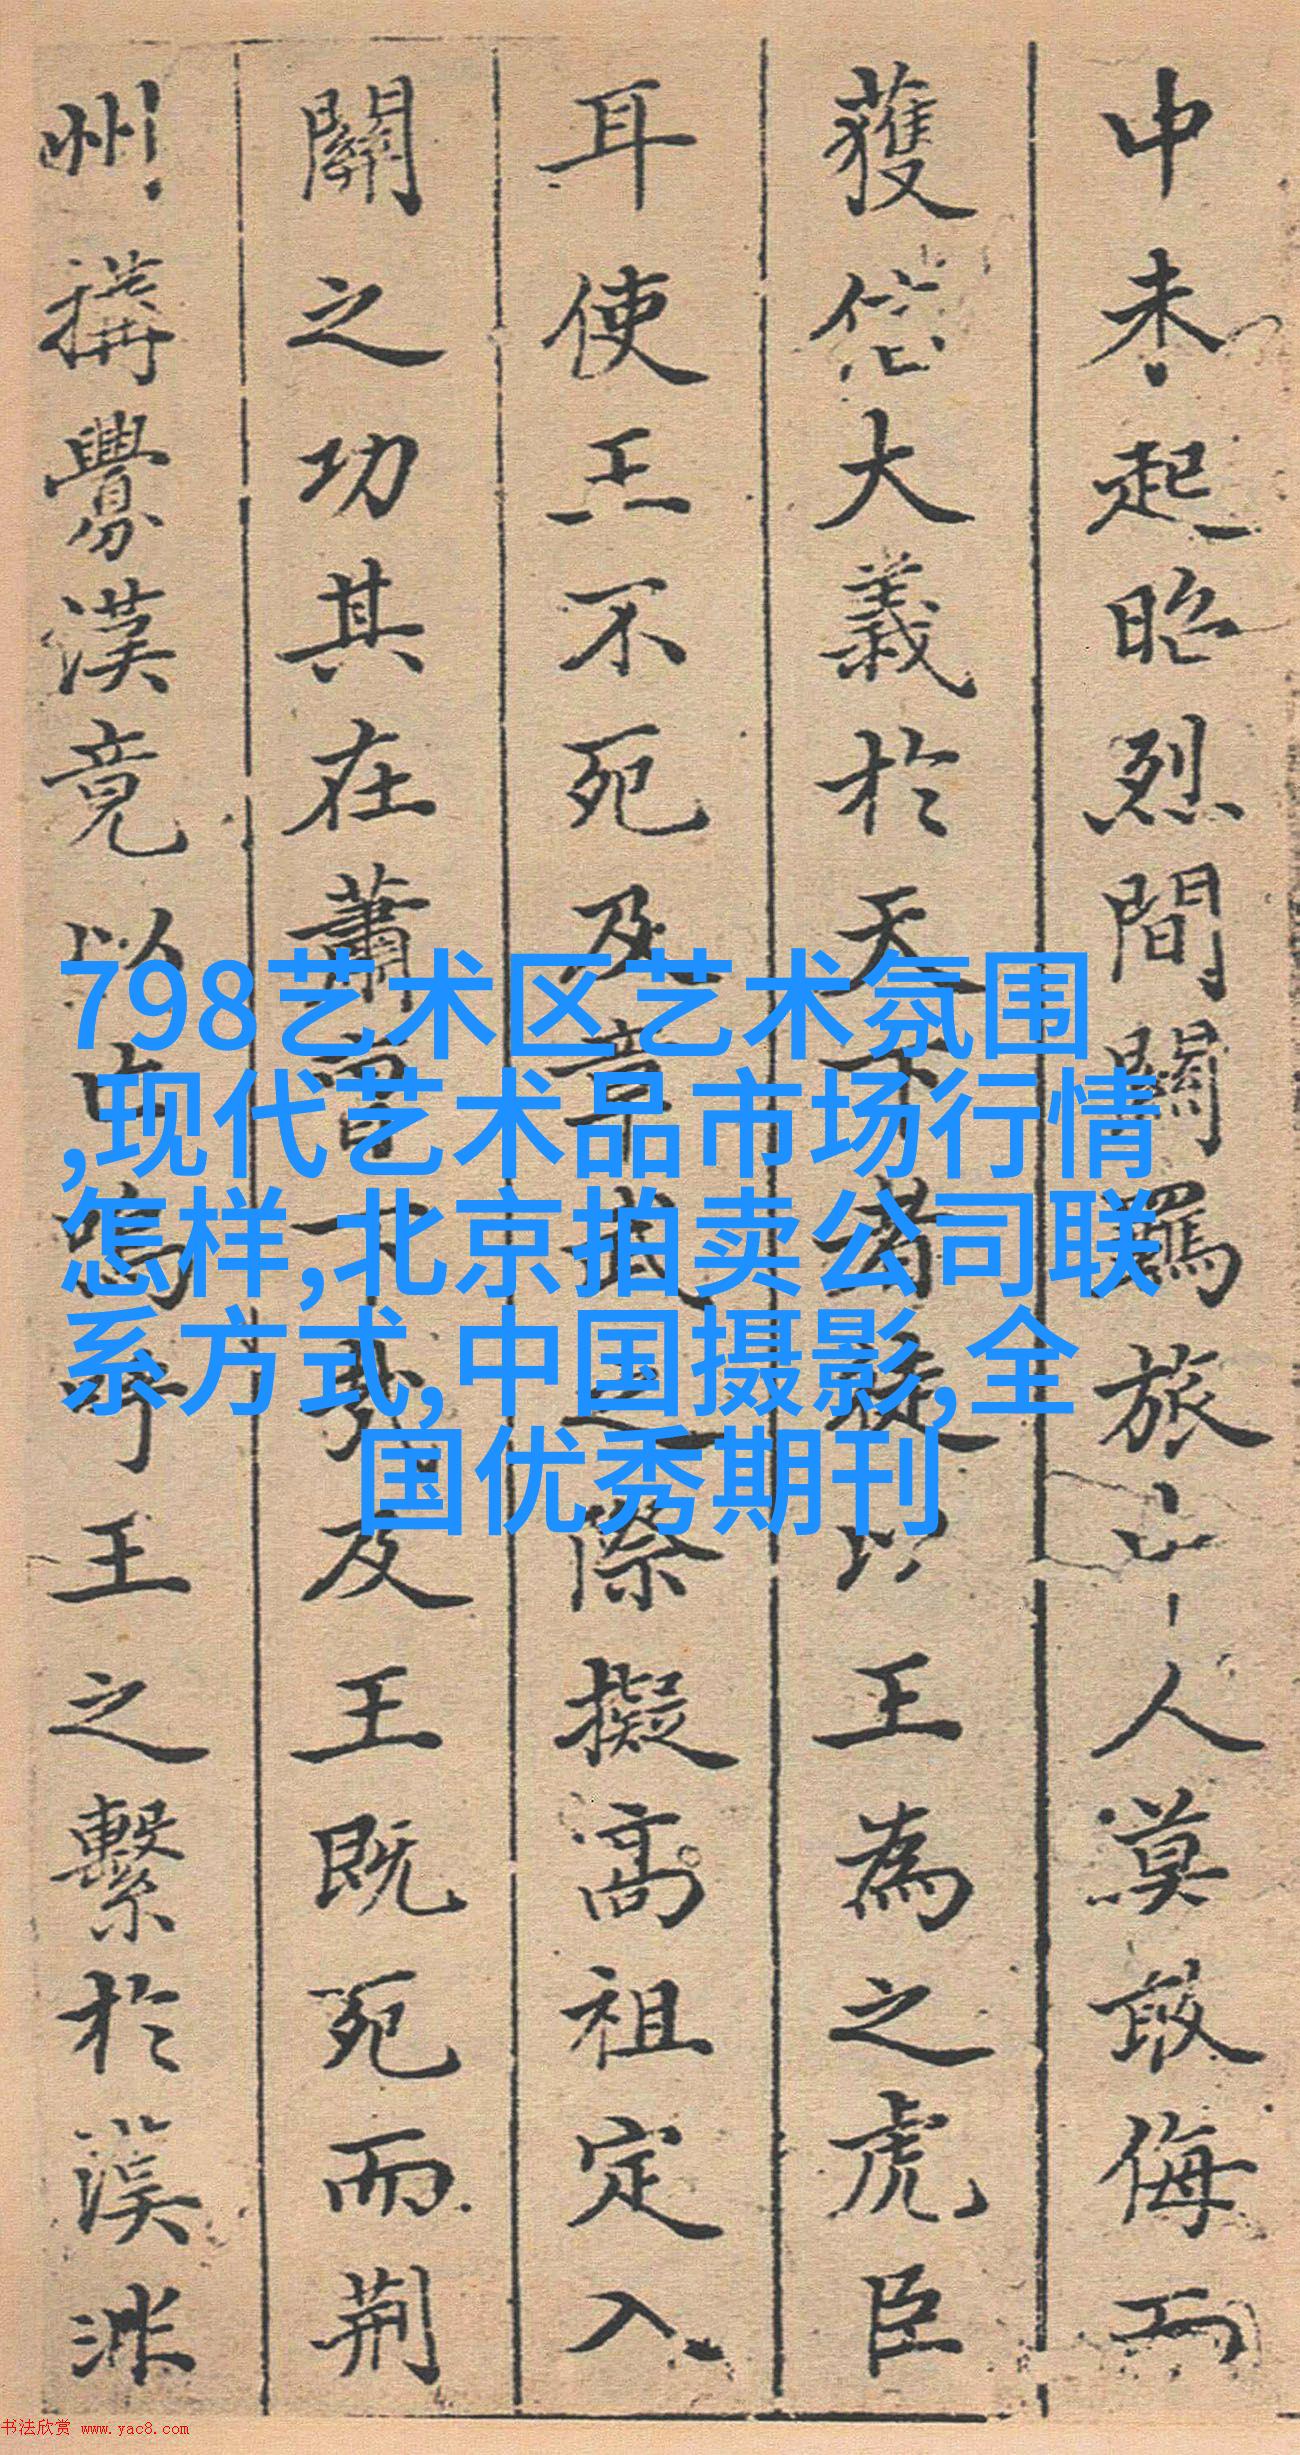 中未起昭烈間關羈旅人莫敢侮而
獲信大義於天下者徒以王為之虎臣
耳使王不死及章武之際擬高祖定入
關之功其在蕭曹下哉及王既死而荊
州搆釁漢竟以亡嗚呼王之繫於漢非
798艺术区艺术氛围
,现代艺术品市场行情
怎样,北京拍卖公司联
系方式,中国摄影,全
国优秀期刊
书法欣赏 www.yac8.com